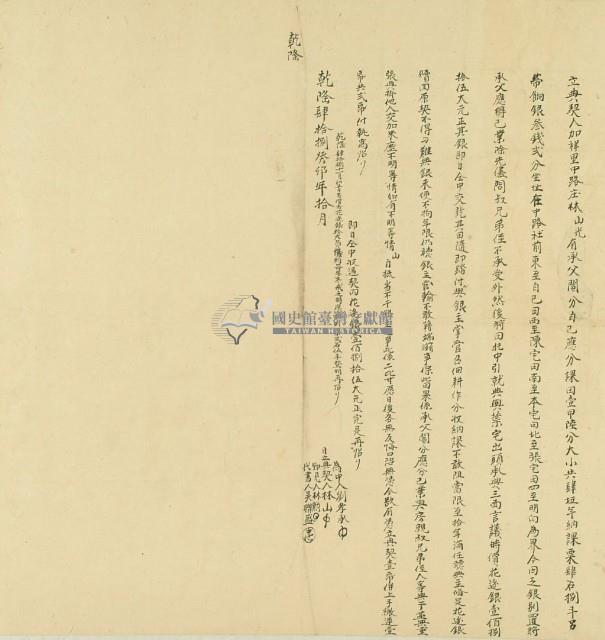 立典契人加祥里甲路庄林山光有承父鬮分自己應分課田壹甲陸分大小共肆坵年納課粟肆石捌斗呂
帶銅銀叁錢弍分坐址在中路社前東至自己田西至陳宅田南至本宅田北至張宅田四至明白為界今因乏銀別置將
承父應得己業除先儘問叔兄弟侄不承受外然後將田托中引就典與葉宅出頭承典三面言議時價花邊銀壹佰捌
拾伍大元正其銀即日仝中交訖其田隨即踏付與銀主掌管召佃耕作分收納課不敢阻當限至拾年滿任聽典主備足花邊銀
贖回原契不得刁難無銀來便不拘年限仍聽銀主管輸不敢藉端滋事保此業果係承父鬮分應分己業與房親叔兄弟侄人等無干並無重
張典掛他人交加來歷不明等情如有不明等情山自抵當不干銀主之事此係二比甘愿日後各無反悔口恐無憑今欲有憑立典契壹帋併上手繳連壹
帋共弍帋付執為炤
即日仝中收過契內花邊銀壹佰捌拾伍大元正完足再炤
為中人劉孝承
日立典契人林山
知見人林勤
代書人吳聯盛
乾隆肆拾捌癸卯年拾月
乾隆
國史館臺灣文獻館
TAIWAN HISTORICA